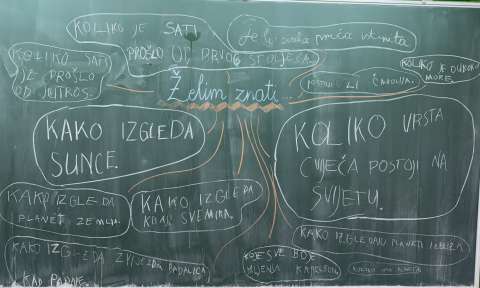 KOLIKO JE SATI
PROŠLO OD PRVOG STOLJEĆA
Je li svaka priča istinita
KOLIKO SATI
JE PROŠLO
OD JUTROS.
KOLIKO JE DUBOKO
MORE.
POSTOJI LI ČAROLIJA.
Želim znati...
KAKO IZGLEDA
SUNCE.
KOLIKO VRSTA
CVIJEĆA POSTOJI NA
SVIJETU.
KAKO IZGLEDA
PLANET ZEMLJA.
KAKO IZGLEDA
KRAJ SVEMIRA.
KAKO IZGLEDA ZVIJEZDA PADALICA
KAD PADNE.
KOJE SVE BOJE
MIJENJA KAMELEON.
KAKO IZGLEDAJU PLANETI IZBLIZA